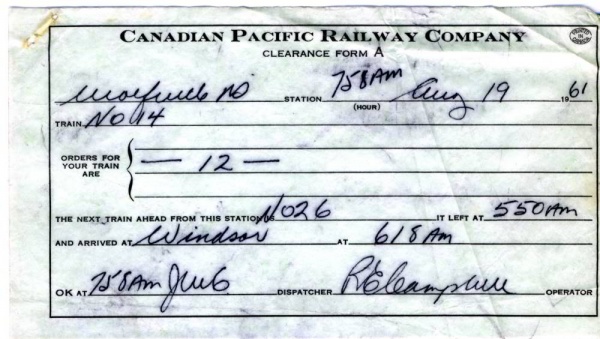 CANADIAN PACIFIC RAILWAY COMPANY
PRINTED IN CANADA
CLEARANCE FORM A
STATION 758AM (HOUR) Aug 19 1961
TRAIN No 14
ORDERS FOR YOUR TRAIN ARE — 12 —
THE NEXT TRAIN AHEAD FROM THIS STATION IS No26 IT LEFT AT 550AM
AND ARRIVED AT Windsor AT 618AM
OK AT 758AM DISPATCHER RECampbell OPERATOR